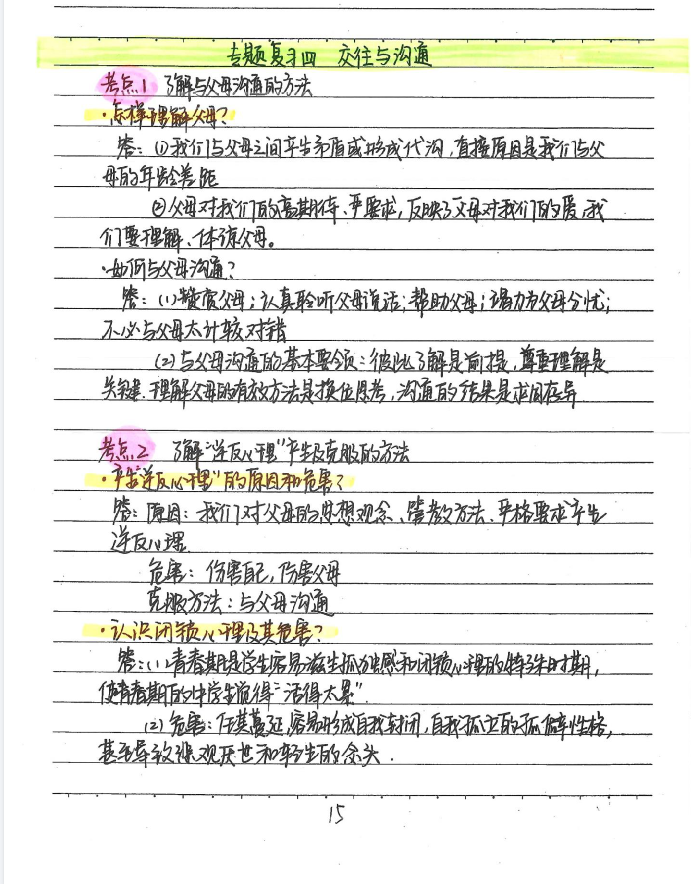 专题复习四 交往与沟通
考点1 了解与父母沟通的方法
·怎样理解父母?
答:(1)我们与父母之间产生矛盾或形成代沟,直接原因是我们与父
母的年龄差距
②父母对我们的高期待、严要求,反映了父母对我们的爱,我
们要理解、体谅父母。
·如何与父母沟通?
答:(1)赞赏父母;认真聆听父母说话;帮助父母;竭力为父母分忧;
不必与父母太计较对错
(2)与父母沟通的基本要领:彼此了解是前提,尊重理解是
关键.理解父母的有效方法是换位思考,沟通的结果是求同存异
考点2 了解"逆反心理"产生及克服的方法
·产生"逆反心理"的原因和危害?
答:原因:我们对父母的思想观念、管教方法、严格要求产生
逆反心理.
危害:伤害自己,伤害父母
克服方法:与父母沟通
·认识闭锁心理及其危害?
答:(1)青春期是学生容易滋生孤独感和闭锁心理的特殊时期,
使青春期的中学生觉得"活得太累".
(2)危害:任其蔓延,容易形成自我封闭,自我孤立的孤僻性格,
甚至导致悲观厌世和轻生的念头.
15